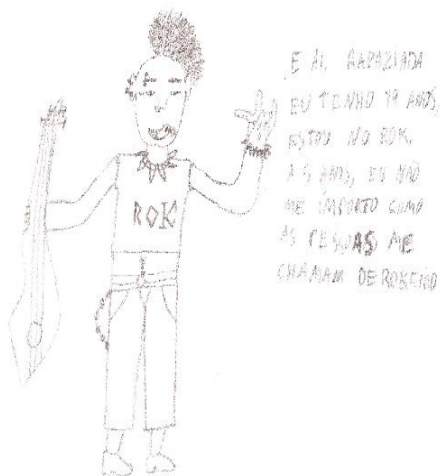 ROK
E AI, RAPAZIADA
EU TENHO 19 ANOS,
ESTOU NO ROK
A 5 ANOS, EU NÃO
ME IMPORTO COMO
AS PESOAS ME
CHAMAM DE ROKEIRO